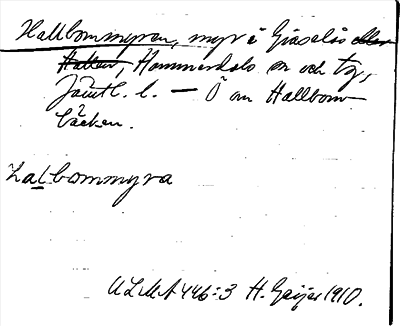 Hallbommyren, myr i Gåxsjö eller
Hallen, Hammerdals sn och tg,
Jämtl. l. — Ö om Hallbom-
bäcken.
halbommyra
ULMA 446:3 H. Geijer 1910.